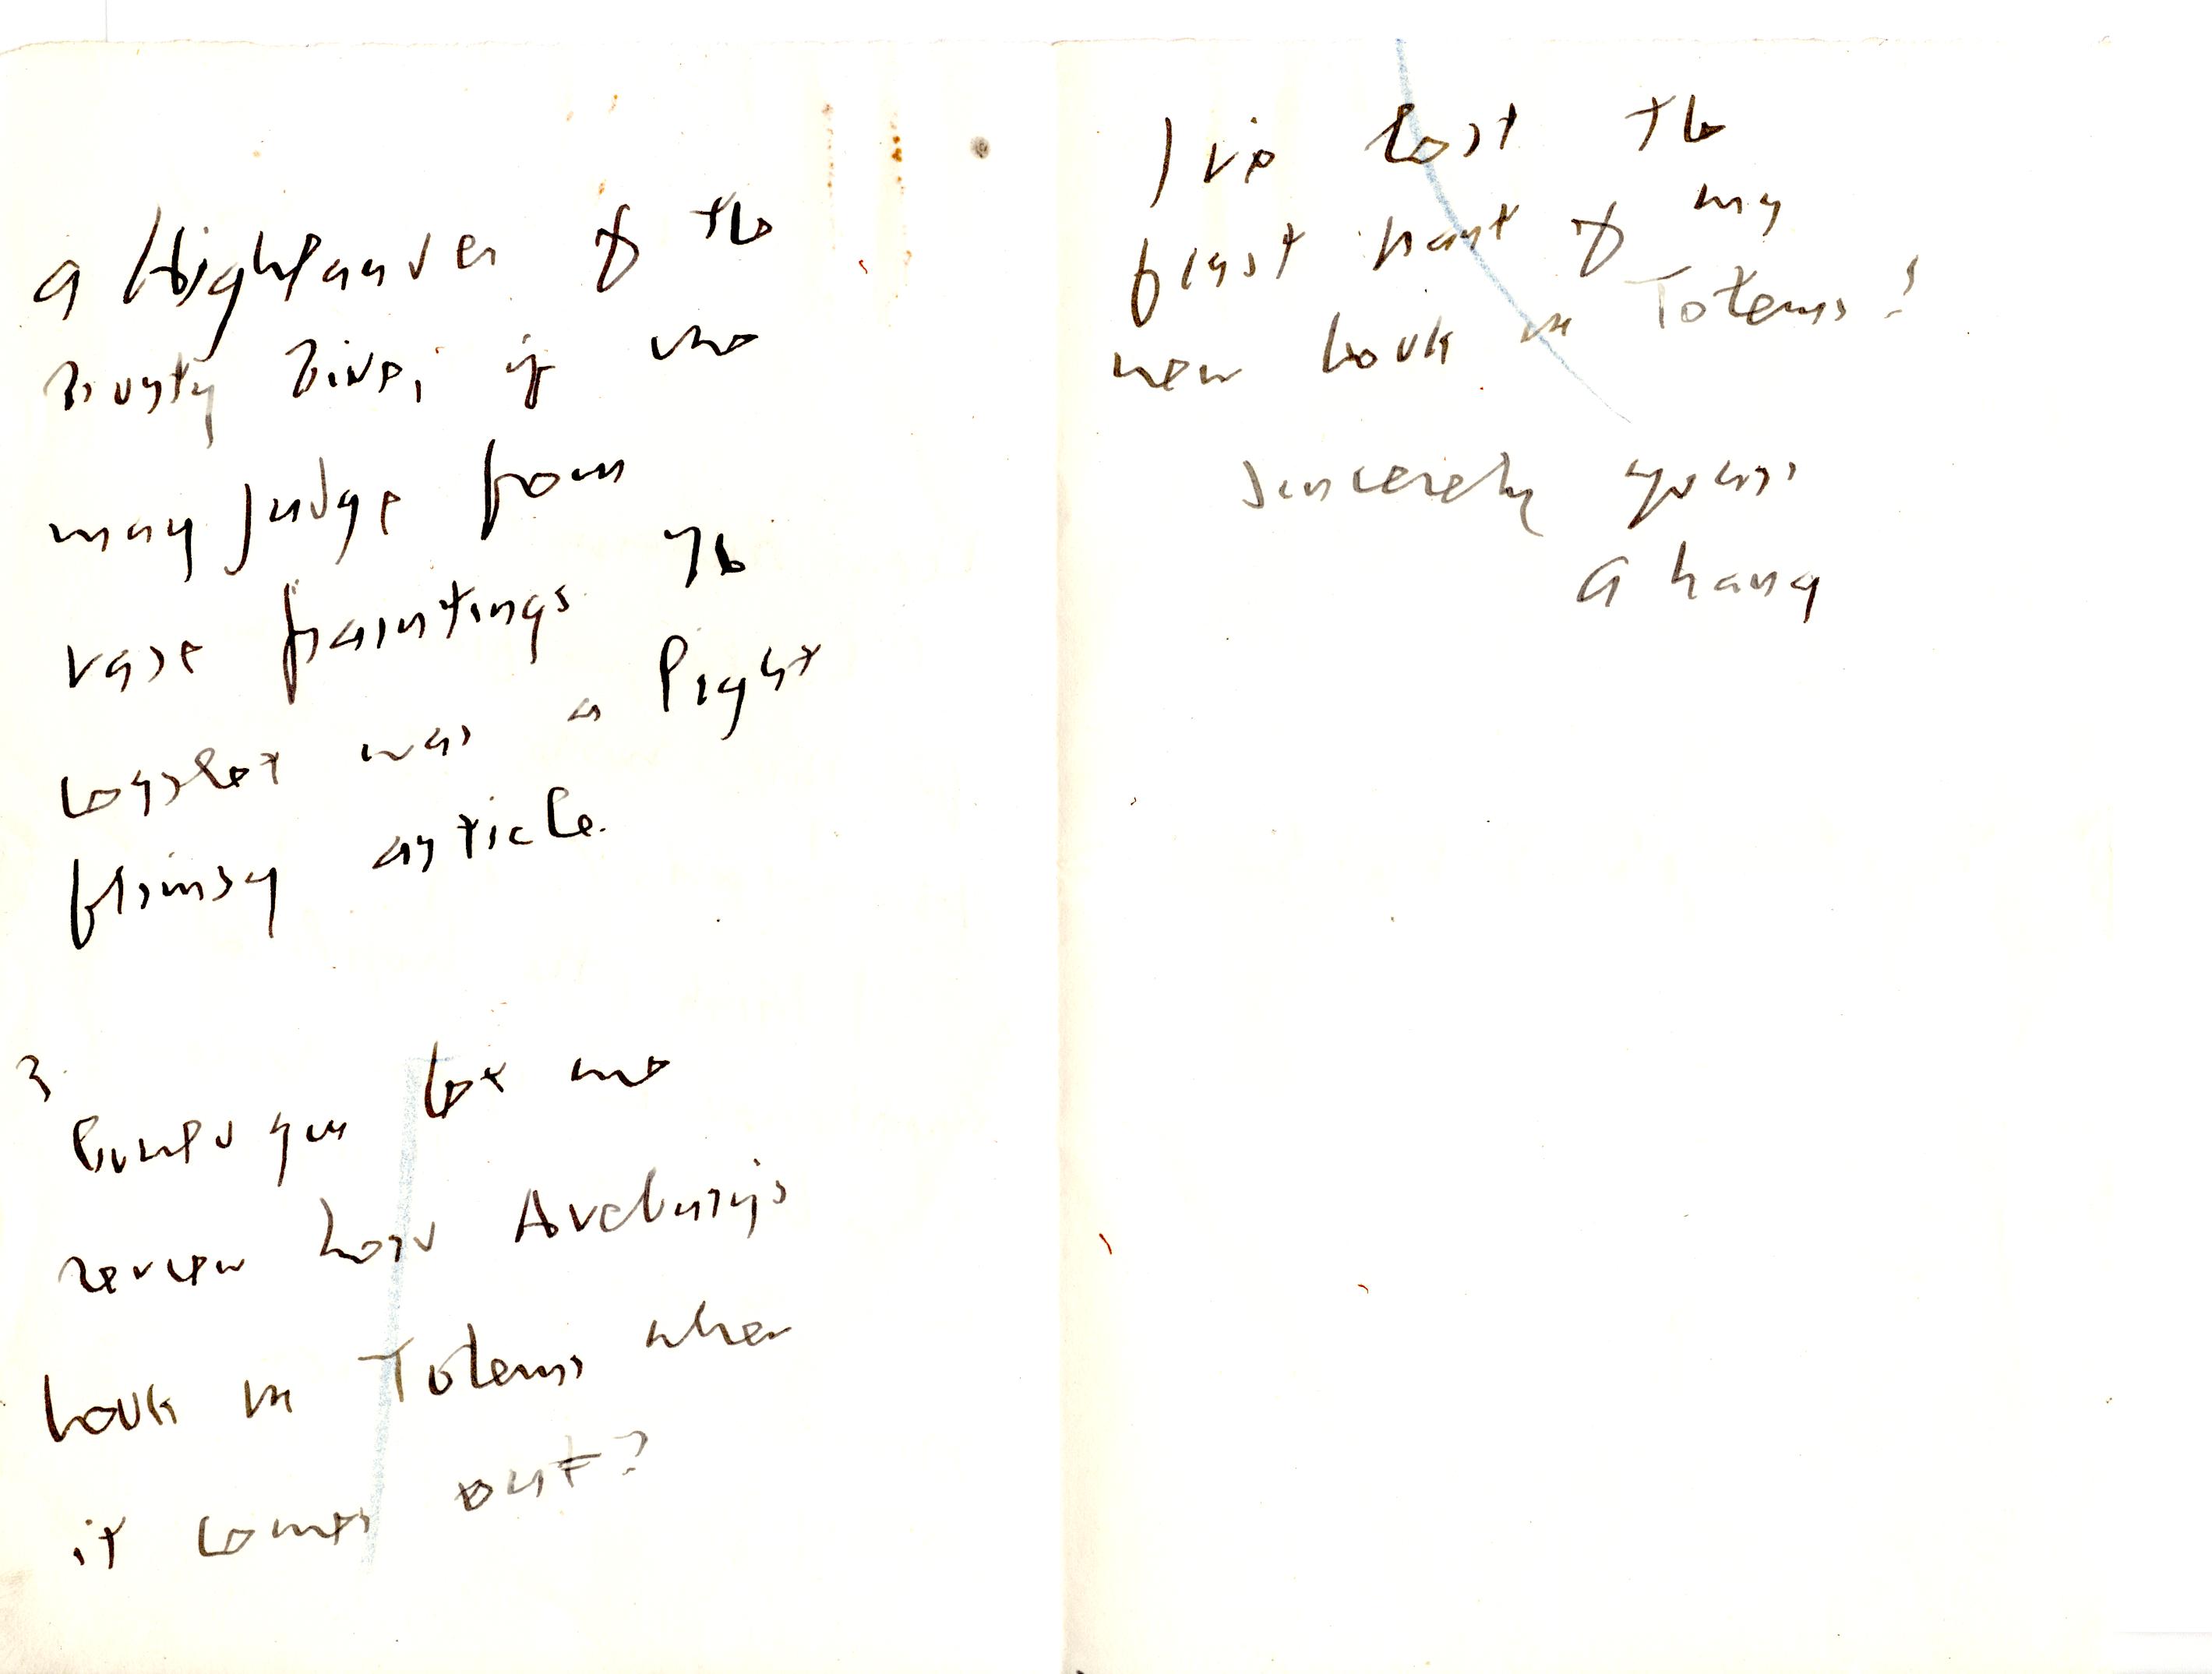 a Highlander of the
may judge from
vase paintings. The
corslet was a light
flimsy article.
3
Could you let me
review Lord Avebury's
book on Totems when
it comes out?
I've lost the
first part of my
new book on Totems!
Sincerely yours
A Lang